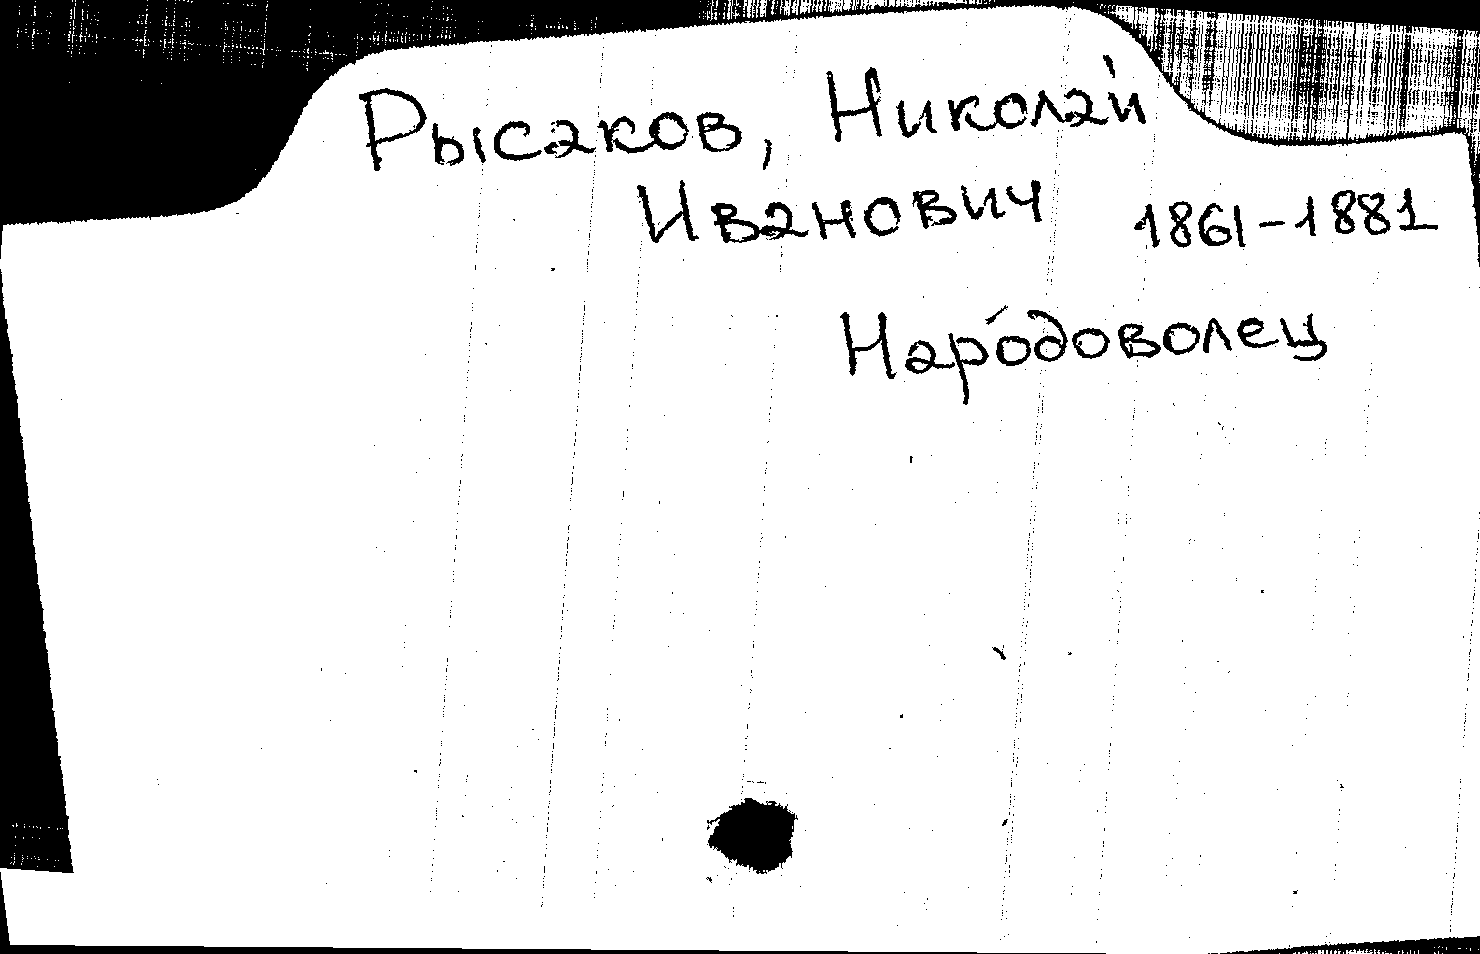 Рысаков, Николай
Иванович 1861-1881
Наро́доволец